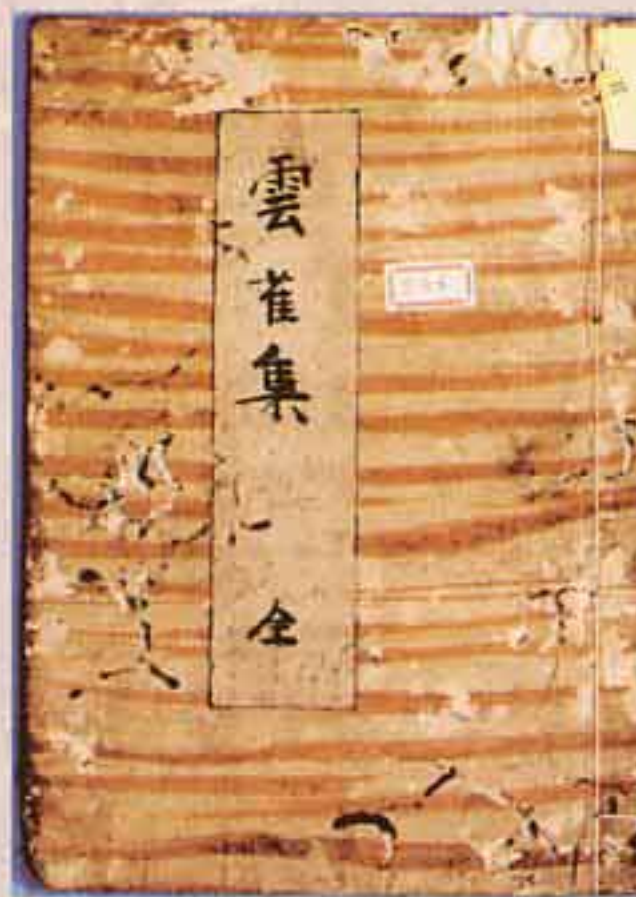 雲雀集 全